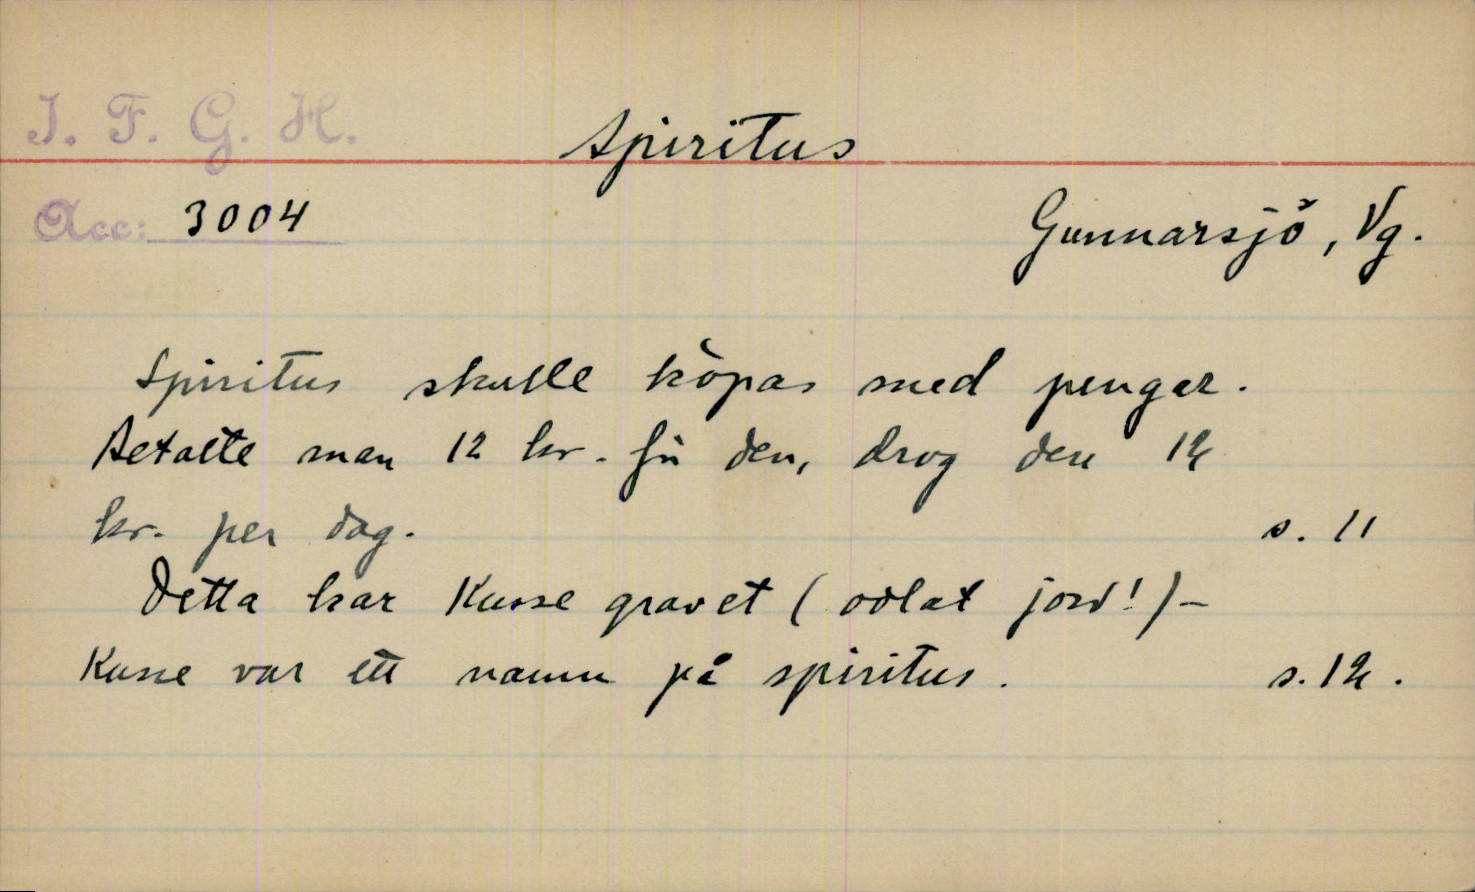 I. F. G. H.
Spiritus
Acc: 3004
Gunnarsjö, Vg.
Spiritus skulle köpas med pengar.
Betalte man 12 kr. för den, drog den 12
kr. per dag. s. 11
Detta har Kusse gravet (odlat jord!) –
Kusse var ett namn på spiritus. s. 12.